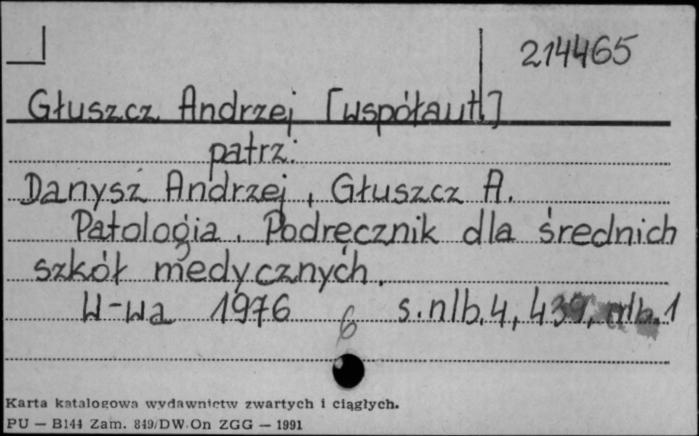 214465
Głuszcz Andrzej [współaut.]
patrz:
Danysz Andrzej, Głuszcz A.
Patologia. Podręcznik dla średnich
szkół medycznych.
W-wa 1976 s.nlb.4, 439, nlb.1
6
Karta katalogowa wydawnictw zwartych i ciągłych.
PU — B144 Zam. 849/DW On ZGG — 1991